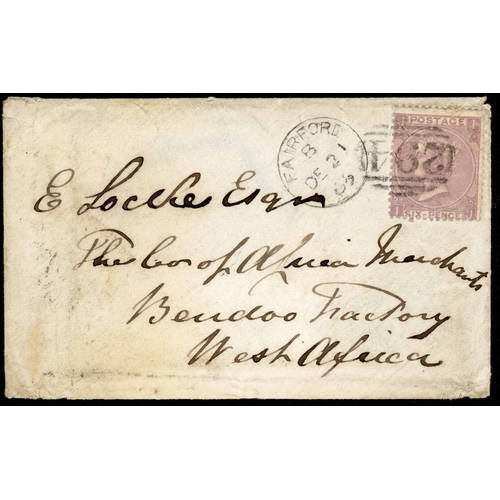 FAIRFORD
B
DE 21
65
POSTAGE
SIX-PENCE
E Locke Esqr
The Co of Africa Merchants
Bendoo Factory
West Africa